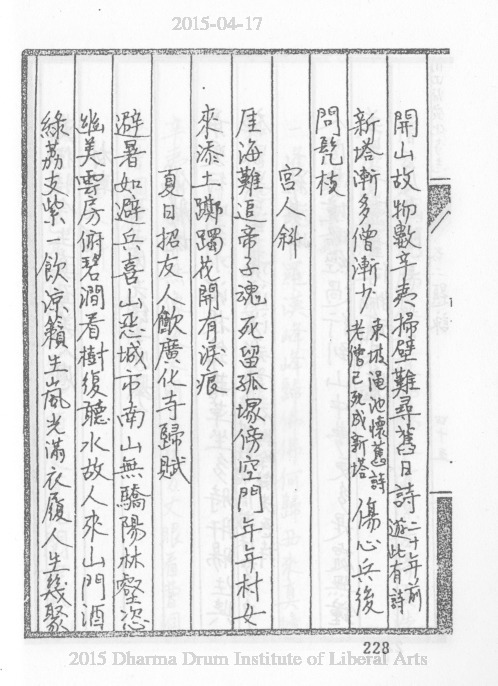 2015-04-17
開山故物數辛夷掃壁難尋舊日詩二十年前遊此有詩
新塔漸多僧漸少東坡澠池懷舊詩老僧已死成新塔傷心兵後
問髡枝
宮人斜
厓海難追帝子魂死留孤塚傍空門年年村女
來添土躑躅花開有淚痕
夏日招友人飲廣化寺歸賦
避暑如避兵喜山惡城市南山無驕陽林壑恣
幽美雲房俯碧澗看樹復聽水故人來山門酒
綠荔支紫一飲涼籟生嵐光滿衣履人生幾聚
228
2015 Dharma Drum Institute of Liberal Arts